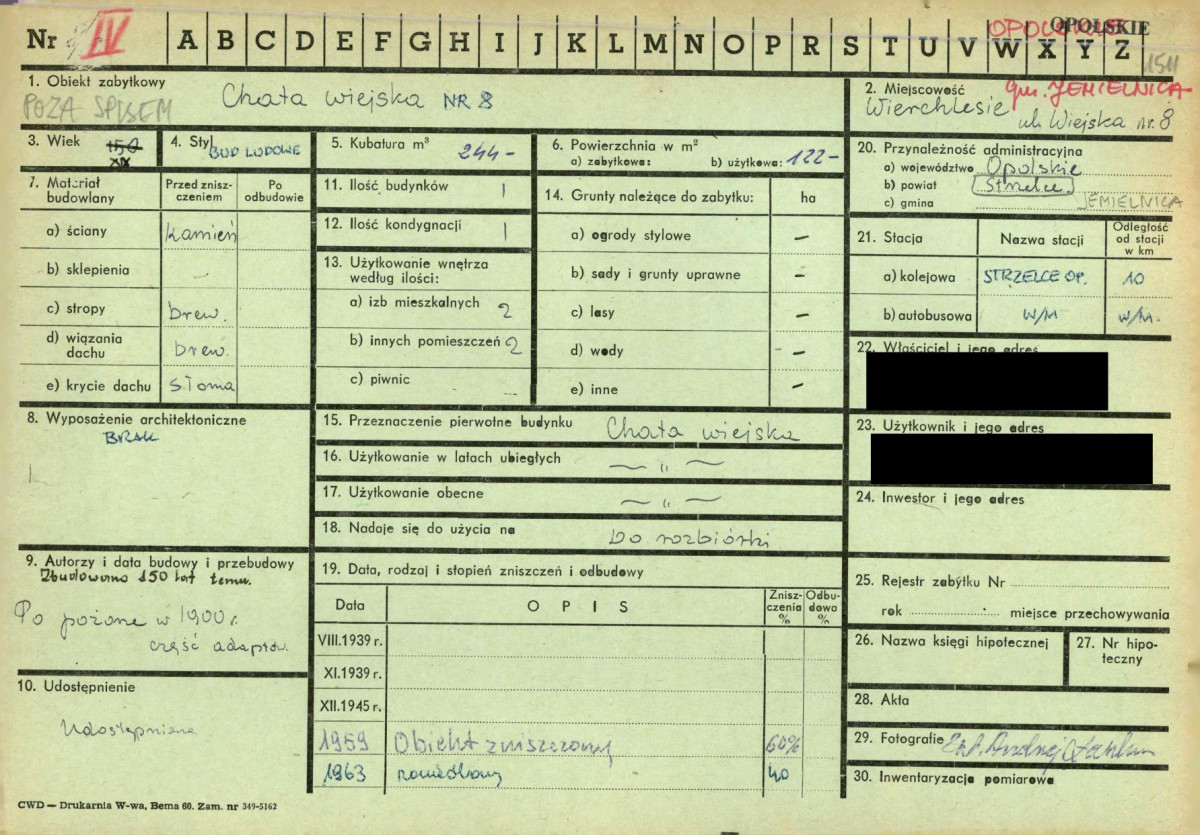 Nr IV A B C D E F G H I J K L M N O P R S T U V W X Y Z
OPOLSKIE
1511
1. Obiekt zabytkowy
POZA SPISEM
Chata wiejska NR 8
2. Miejscowość gm. JEMIELNICA
Wierchlesie
ul. Wiejska nr. 8
3. Wiek 150
XIX
4. Styl BUD LUDOWE
5. Kubatura m³ 244-
6. Powierzchnia w m²
a) zabytkowa: b) użytkowa: 122-
7. Materiał budowlany
Przed zniszczeniem
Po odbudowie
a) ściany kamień
b) sklepienia —
c) stropy drew.
d) wiązania dachu drew.
e) krycie dachu słoma
8. Wyposażenie architektoniczne
BRAK
9. Autorzy i data budowy i przebudowy
Zbudowano 150 lat temu.
Po pożarze w 1900 r.
część adaptow.
10. Udostępnienie
Udostępnione
11. Ilość budynków 1
12. Ilość kondygnacji 1
13. Użytkowanie wnętrza według ilości:
a) izb mieszkalnych 2
b) innych pomieszczeń 2
c) piwnic —
14. Grunty należące do zabytku: ha
a) ogrody stylowe —
b) sady i grunty uprawne —
c) lasy —
d) wody —
e) inne —
15. Przeznaczenie pierwotne budynku Chata wiejska
16. Użytkowanie w latach ubiegłych — „ —
17. Użytkowanie obecne — „ —
18. Nadaje się do użycia na Do rozbiórki
19. Data, rodzaj i stopień zniszczeń i odbudowy
Data OPIS Zniszczenia % Odbudowa %
VIII.1939 r.
XI.1939 r.
XII.1945 r.
1959 Obiekt zniszczony 60%
1963 40
20. Przynależność administracyjna
a) województwo Opolskie
b) powiat Strzelce
c) gmina JEMIELNICA
21. Stacja Nazwa stacji Odległość od stacji w km
a) kolejowa STRZELCE OP. 10
b) autobusowa W/M W/M.
22. Właściciel i jego adres
23. Użytkownik i jego adres
24. Inwestor i jego adres
25. Rejestr zabytku Nr
rok miejsce przechowywania
26. Nazwa księgi hipotecznej
27. Nr hipoteczny
28. Akta
29. Fotografie
30. Inwentaryzacja pomiarowa
CWD — Drukarnia W-wa, Bema 60. Zam. nr 349-5162